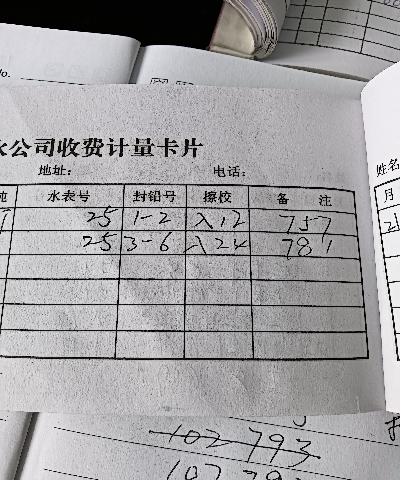 No.
水公司收费计量卡片
地址: 电话:
吨 水表号 封铅号 擦校 备注
25 1-2 入12 757
25 3-6 入24 781
姓名
月
102793